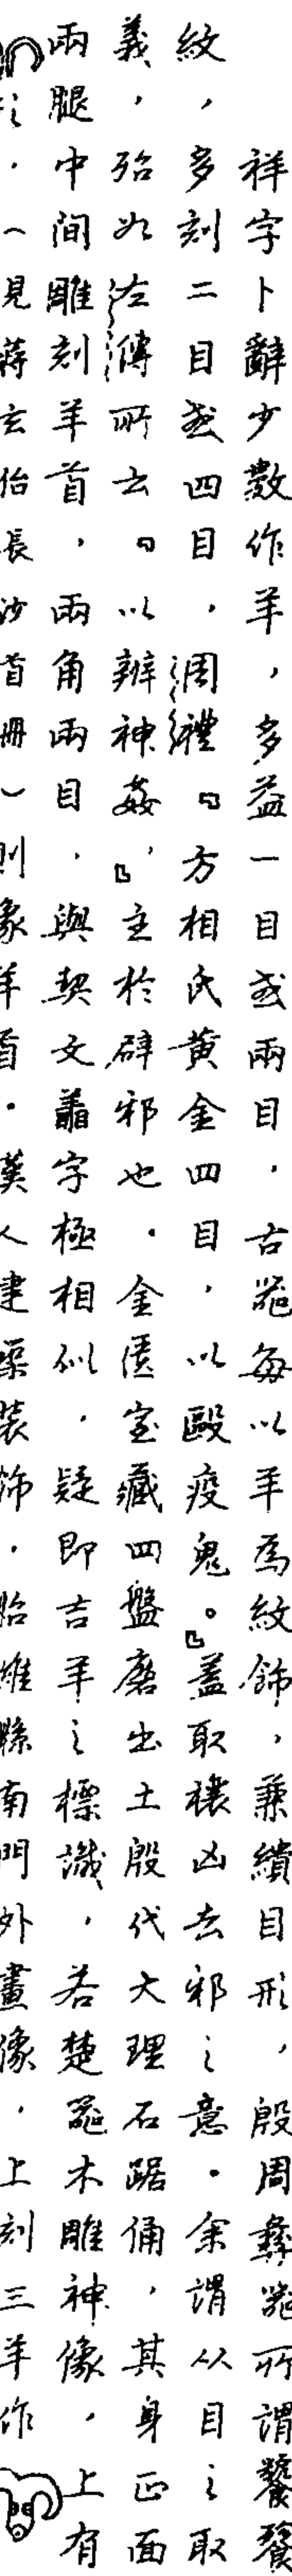 祥字卜辭少數作羊，多益一目或兩目，古器每以羊為紋飾，兼繢目形，殷周彝器所謂饕餮
紋，多刻二目或四目，周禮『方相氏黃金四目，以毆疫鬼。』蓋取禳凶去邪之意．余謂从目之取
義，殆如左傳所云『以辨神姦』，主於辟邪也．金匱室藏四盤磨出土殷代大理石踞俑，其身正面
兩腿中間雕刻羊首，兩角兩目．與契文字極相似，疑即吉羊之標識，若楚器木雕神像，上有
之．（見蔣玄佁長沙首冊）則象羊首．漢人建築裝飾．若維縣南門外畫像，上刻三羊作